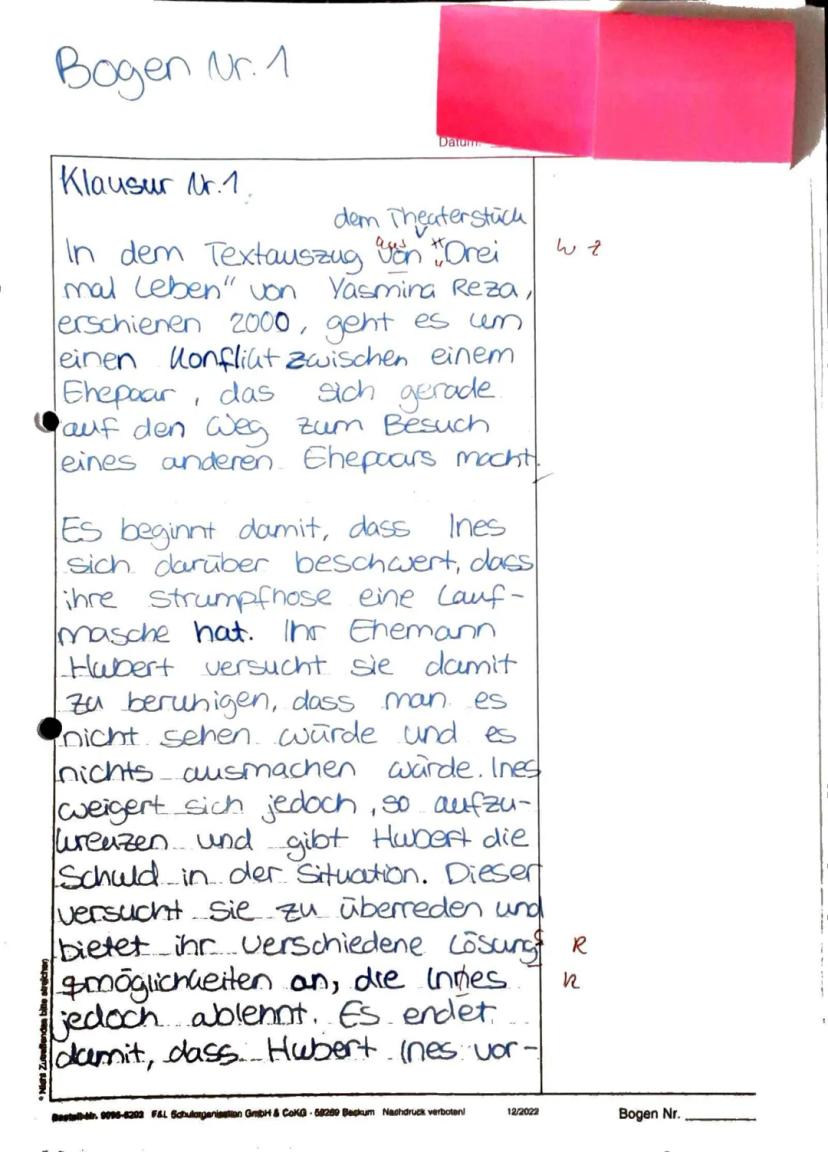 Bogen Nr. 1
Datum:
Klausur Nr. 1.
dem Theaterstück
In dem Textauszug von aus "Drei W Z
mal Leben" von Yasmina Reza,
erschienen 2000, geht es um
einen Konflikt zwischen einem
Ehepaar, das sich gerade
auf den Weg zum Besuch
eines anderen Ehepaars macht.
Es beginnt damit, dass Ines
sich darüber beschwert, dass
ihre Strumpfhose eine Lauf-
masche hat. Ihr Ehemann
Hubert versucht sie damit
zu beruhigen, dass man es
nicht sehen würde und es
nichts ausmachen würde. Ines
weigert sich jedoch, so aufzu-
kreuzen und gibt Hubert die
Schuld in der Situation. Dieser
versucht sie zu überreden und
bietet ihr verschiedene Lösungs R
möglichkeiten an, die Ines R
jedoch ablehnt. Es endet
damit, dass Hubert Ines vor-
* Nicht Zutreffendes bitte streichen
Bestell-Nr. 9096-5202 F&L Schulorganisation GmbH & CoKG · 59269 Beckum Nachdruck verboten! 12/2022 Bogen Nr.